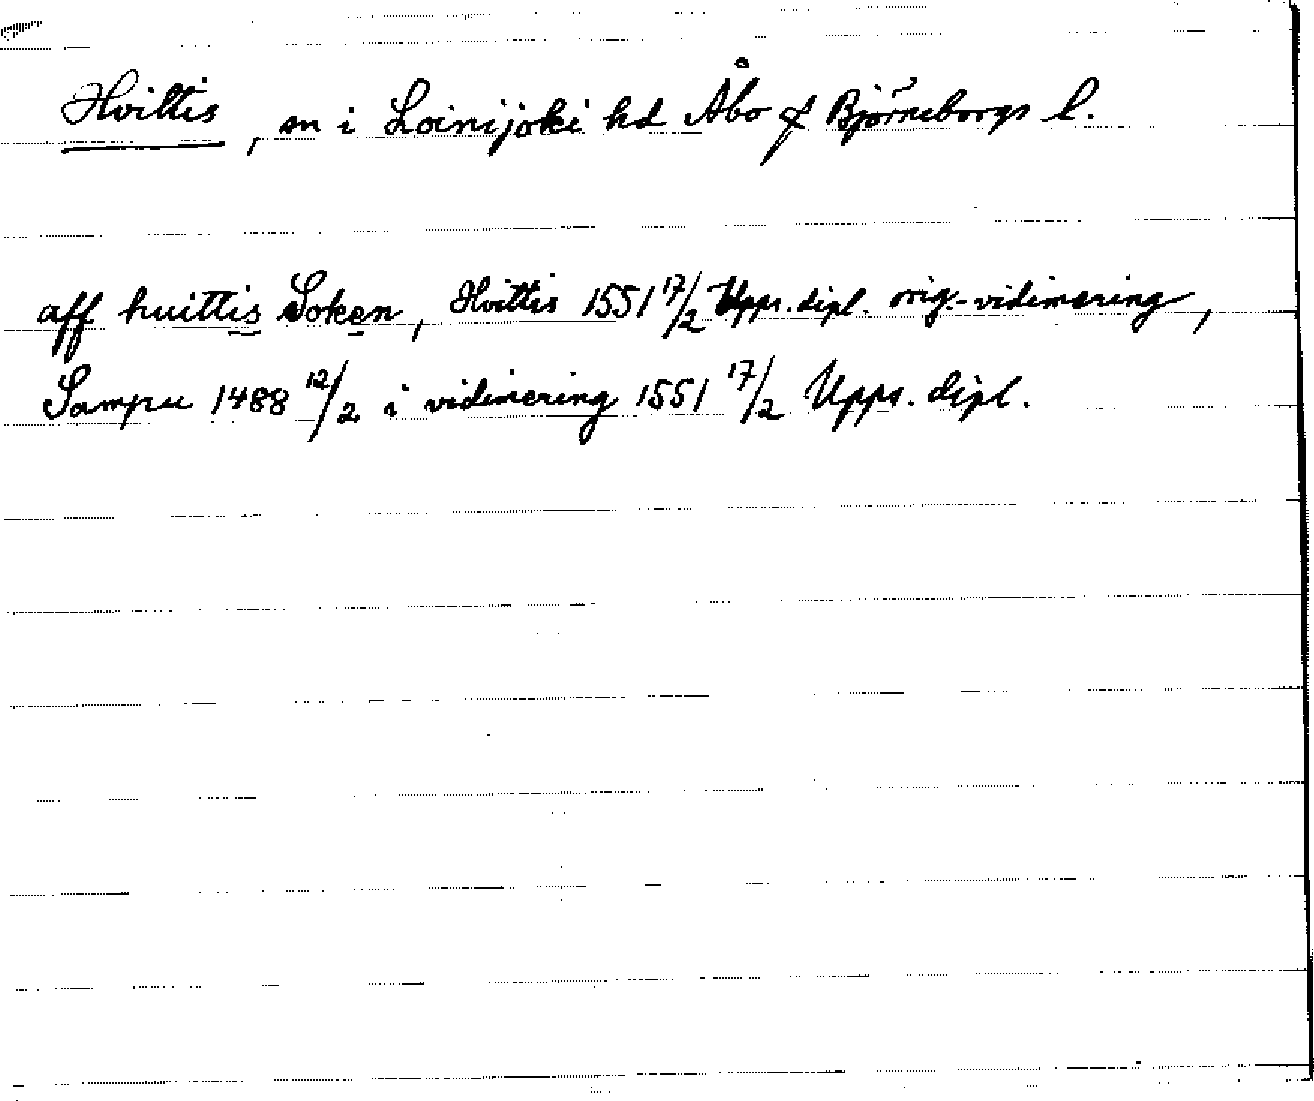 Hvittis, sn i Loinijoki hd Åbo o Björneborgs l.
aff huittis Soken, Hvittis 1551 17/2 Upps. dipl. orig.-vidimering,
Sampu 1488 12/2 i vidimering 1551 17/2 Upps. dipl.